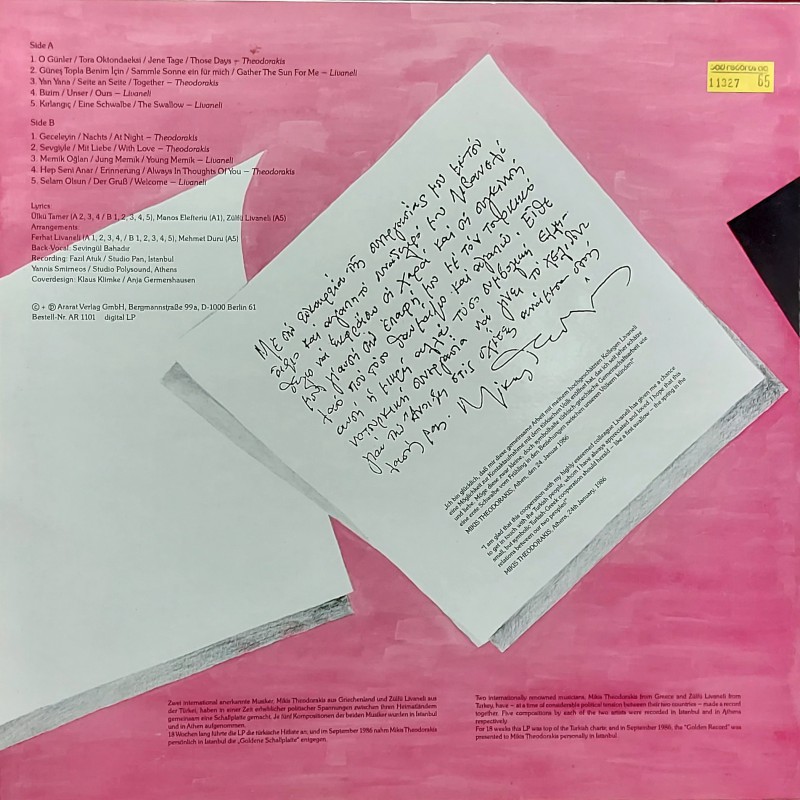 Side A
1. O Günler / Tora Oktondaeksi / Jene Tage / Those Days – Theodorakis
2. Güneş Topla Benim İçin / Sammle Sonne ein für mich / Gather The Sun For Me – Livaneli
3. Yan Yana / Seite an Seite / Together – Theodorakis
4. Bizim / Unser / Ours – Livaneli
5. Kırlangıç / Eine Schwalbe / The Swallow – Livaneli
Side B
1. Geceleyin / Nachts / At Night – Theodorakis
2. Sevgiyle / Mit Liebe / With Love – Theodorakis
3. Memik Oğlan / Jung Memik / Young Memik – Livaneli
4. Hep Seni Anar / Erinnerung / Always In Thoughts Of You – Theodorakis
5. Selam Olsun / Der Gruß / Welcome – Livaneli
Lyrics:
Ülkü Tamer (A 2, 3, 4 / B 1, 2, 3, 4, 5), Manos Elefteriu (A1), Zülfü Livaneli (A5)
Arrangements:
Ferhat Livaneli (A 1, 2, 3, 4, / B 1, 2, 3, 4, 5), Mehmet Duru (A5)
Back-Vocal: Sevingül Bahadır
Recording: Fazıl Atuk / Studio Pan, Istanbul
Yannis Smirneos / Studio Polysound, Athens
Coverdesign: Klaus Klimke / Anja Germershausen
© + ℗ Ararat Verlag GmbH, Bergmannstraße 99a, D-1000 Berlin 61
Bestell-Nr. AR 1101 digital LP
11327 65
Με την ευκαιρία της συνεργασίας μου με τον
άξιο και αγαπητό συνάδελφο μου Λιβανελί
θέλω να εκφράσω τη χαρά και τη συγκίνησή
μου γι αυτή την επαφή μου με τον Τουρκικό
λαό που τόσο θαυμάζω και αγαπώ. Είθε
αυτή η μικρή αλλά τόσο συμβολική Ελλη-
νοτουρκική συνεργασία να γίνει το χελιδόνι
για την Άνοιξη στις σχέσεις ανάμεσα στους
λαούς μας.
„Ich bin glücklich, daß mir diese gemeinsame Arbeit mit meinem hochgeschätzten Kollegen Livaneli
eine Möglichkeit zur Kontaktaufnahme mit dem türkischen Volk eröffnet hat, das ich seit jeher schätze
und liebe. Möge diese zwar kleine, doch symbolhafte türkisch-griechische Gemeinschaftsarbeit wie
eine erste Schwalbe vom Frühling in den Beziehungen zwischen unseren Völkern künden!"
MIKIS THEODORAKIS, Athen, den 24. Januar 1986
"I am glad that this cooperation with my highly esteemed colleague Livaneli has given me a chance
to get in touch with the Turkish people, whom I have always appreciated and loved. I hope that this
small, but symbolic Turkish-Greek cooperation should herald – like a first swallow – the spring in the
relations between our two peoples!"
MIKIS THEODORAKIS, Athens, 24th January, 1986
Zwei international anerkannte Musiker, Mikis Theodorakis aus Griechenland und Zülfü Livaneli aus
der Türkei, haben in einer Zeit erheblicher politischer Spannungen zwischen ihren Heimatländern
gemeinsam eine Schallplatte gemacht. Je fünf Kompositionen der beiden Musiker wurden in Istanbul
und in Athen aufgenommen.
18 Wochen lang führte die LP die türkische Hitliste an; und im September 1986 nahm Mikis Theodorakis
persönlich in Istanbul die „Goldene Schallplatte" entgegen.
Two internationally renowned musicians, Mikis Theodorakis from Greece and Zülfü Livaneli from
Turkey, have – at a time of considerable political tension between their two countries – made a record
together. Five compositions by each of the two artists were recorded in Istanbul and in Athens
respectively.
For 18 weeks this LP was top of the Turkish charts; and in September 1986, the "Golden Record" was
presented to Mikis Theodorakis personally in Istanbul.